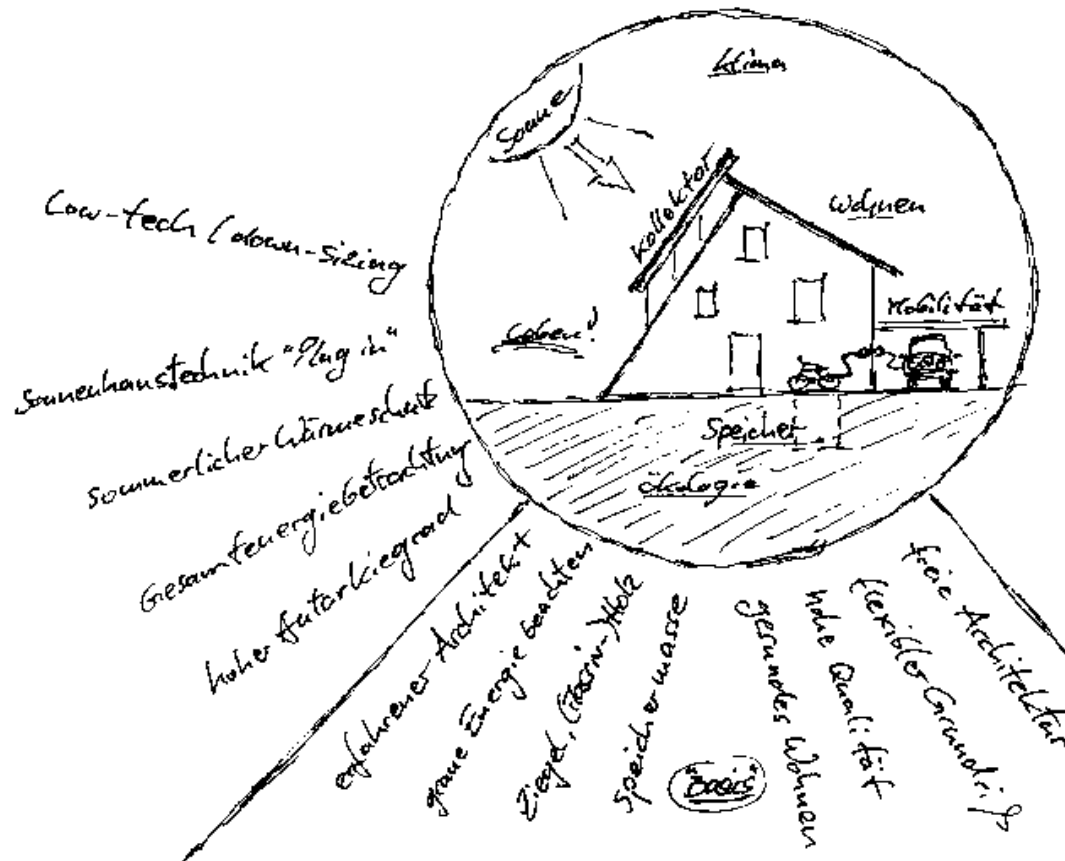 Klima
Sonne
Kollektor
Wohnen
Mobilität
Leben!
Speicher
Ökologie
Low-tech / down-sizing
Sonnenhaustechnik "Plug in"
sommerlicher Wärmeschutz
Gesamtenergiebetrachtung
hoher Autarkiegrad
erfahrener Architekt
graue Energie beachten
Ziegel, (Massiv-)Holz
Speichermasse
"Basis"
gesundes Wohnen
hohe Qualität
flexibler Grundriß
freie Architektur